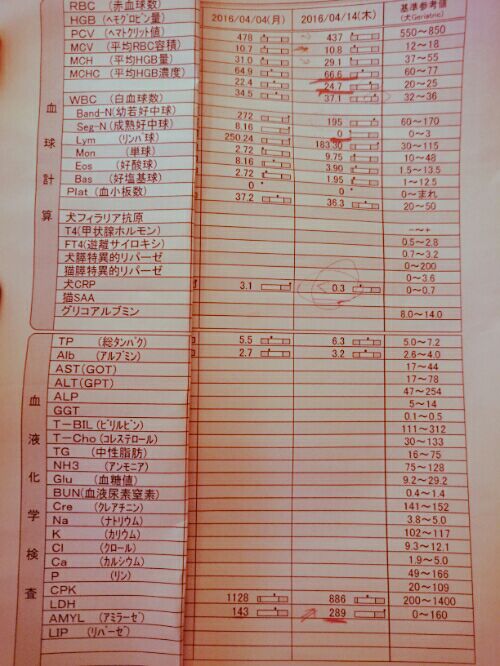 2016/04/04(月) 2016/04/14(木) 基準参考値
(犬Geriatric)
血球計算
RBC (赤血球数) 478 437 550~850
HGB (ヘモグロビン量) 10.7 10.8 12~18
PCV (ヘマトクリット値) 31.0 29.1 37~55
MCV (平均RBC容積) 64.9 66.6 60~77
MCH (平均HGB量) 22.4 24.7 20~25
MCHC (平均HGB濃度) 34.5 37.1 32~36
WBC (白血球数) 272 195 60~170
Band-N(幼若好中球) 8.16 0 0~3
Seg-N(成熟好中球) 250.24 183.30 30~115
Lym (リンパ球) 2.72 9.75 10~48
Mon (単球) 8.16 3.90 1.5~13.5
Eos (好酸球) 2.72 1.95 1~12.5
Bas (好塩基球) 0 0 0~まれ
Plat (血小板数) 37.2 36.3 20~50
犬フィラリア抗原 -~+
T4(甲状腺ホルモン) 0.5~2.8
FT4(遊離サイロキシ) 0.7~3.2
犬膵特異的リパーゼ 0~200
猫膵特異的リパーゼ 0~3.6
犬CRP 3.1 0.3 0~0.7
猫SAA
グリコアルブミン 8.0~14.0
血液化学検査
TP (総タンパク) 5.5 6.3 5.0~7.2
Alb (アルブミン) 2.7 3.2 2.6~4.0
AST(GOT) 17~44
ALT(GPT) 17~78
ALP 47~254
GGT 5~14
T-BIL(ビリルビン) 0.1~0.5
T-Cho(コレステロール) 111~312
TG (中性脂肪) 30~133
NH3 (アンモニア) 16~75
Glu (血糖値) 75~128
BUN(血液尿素窒素) 9.2~29.2
Cre (クレアチニン) 0.4~1.4
Na (ナトリウム) 141~152
K (カリウム) 3.8~5.0
Cl (クロール) 102~117
Ca (カルシウム) 9.3~12.1
P (リン) 1.9~5.0
CPK 49~166
LDH 20~109
AMYL (アミラーゼ) 1128 886 200~1400
LIP (リパーゼ) 143 289 0~160